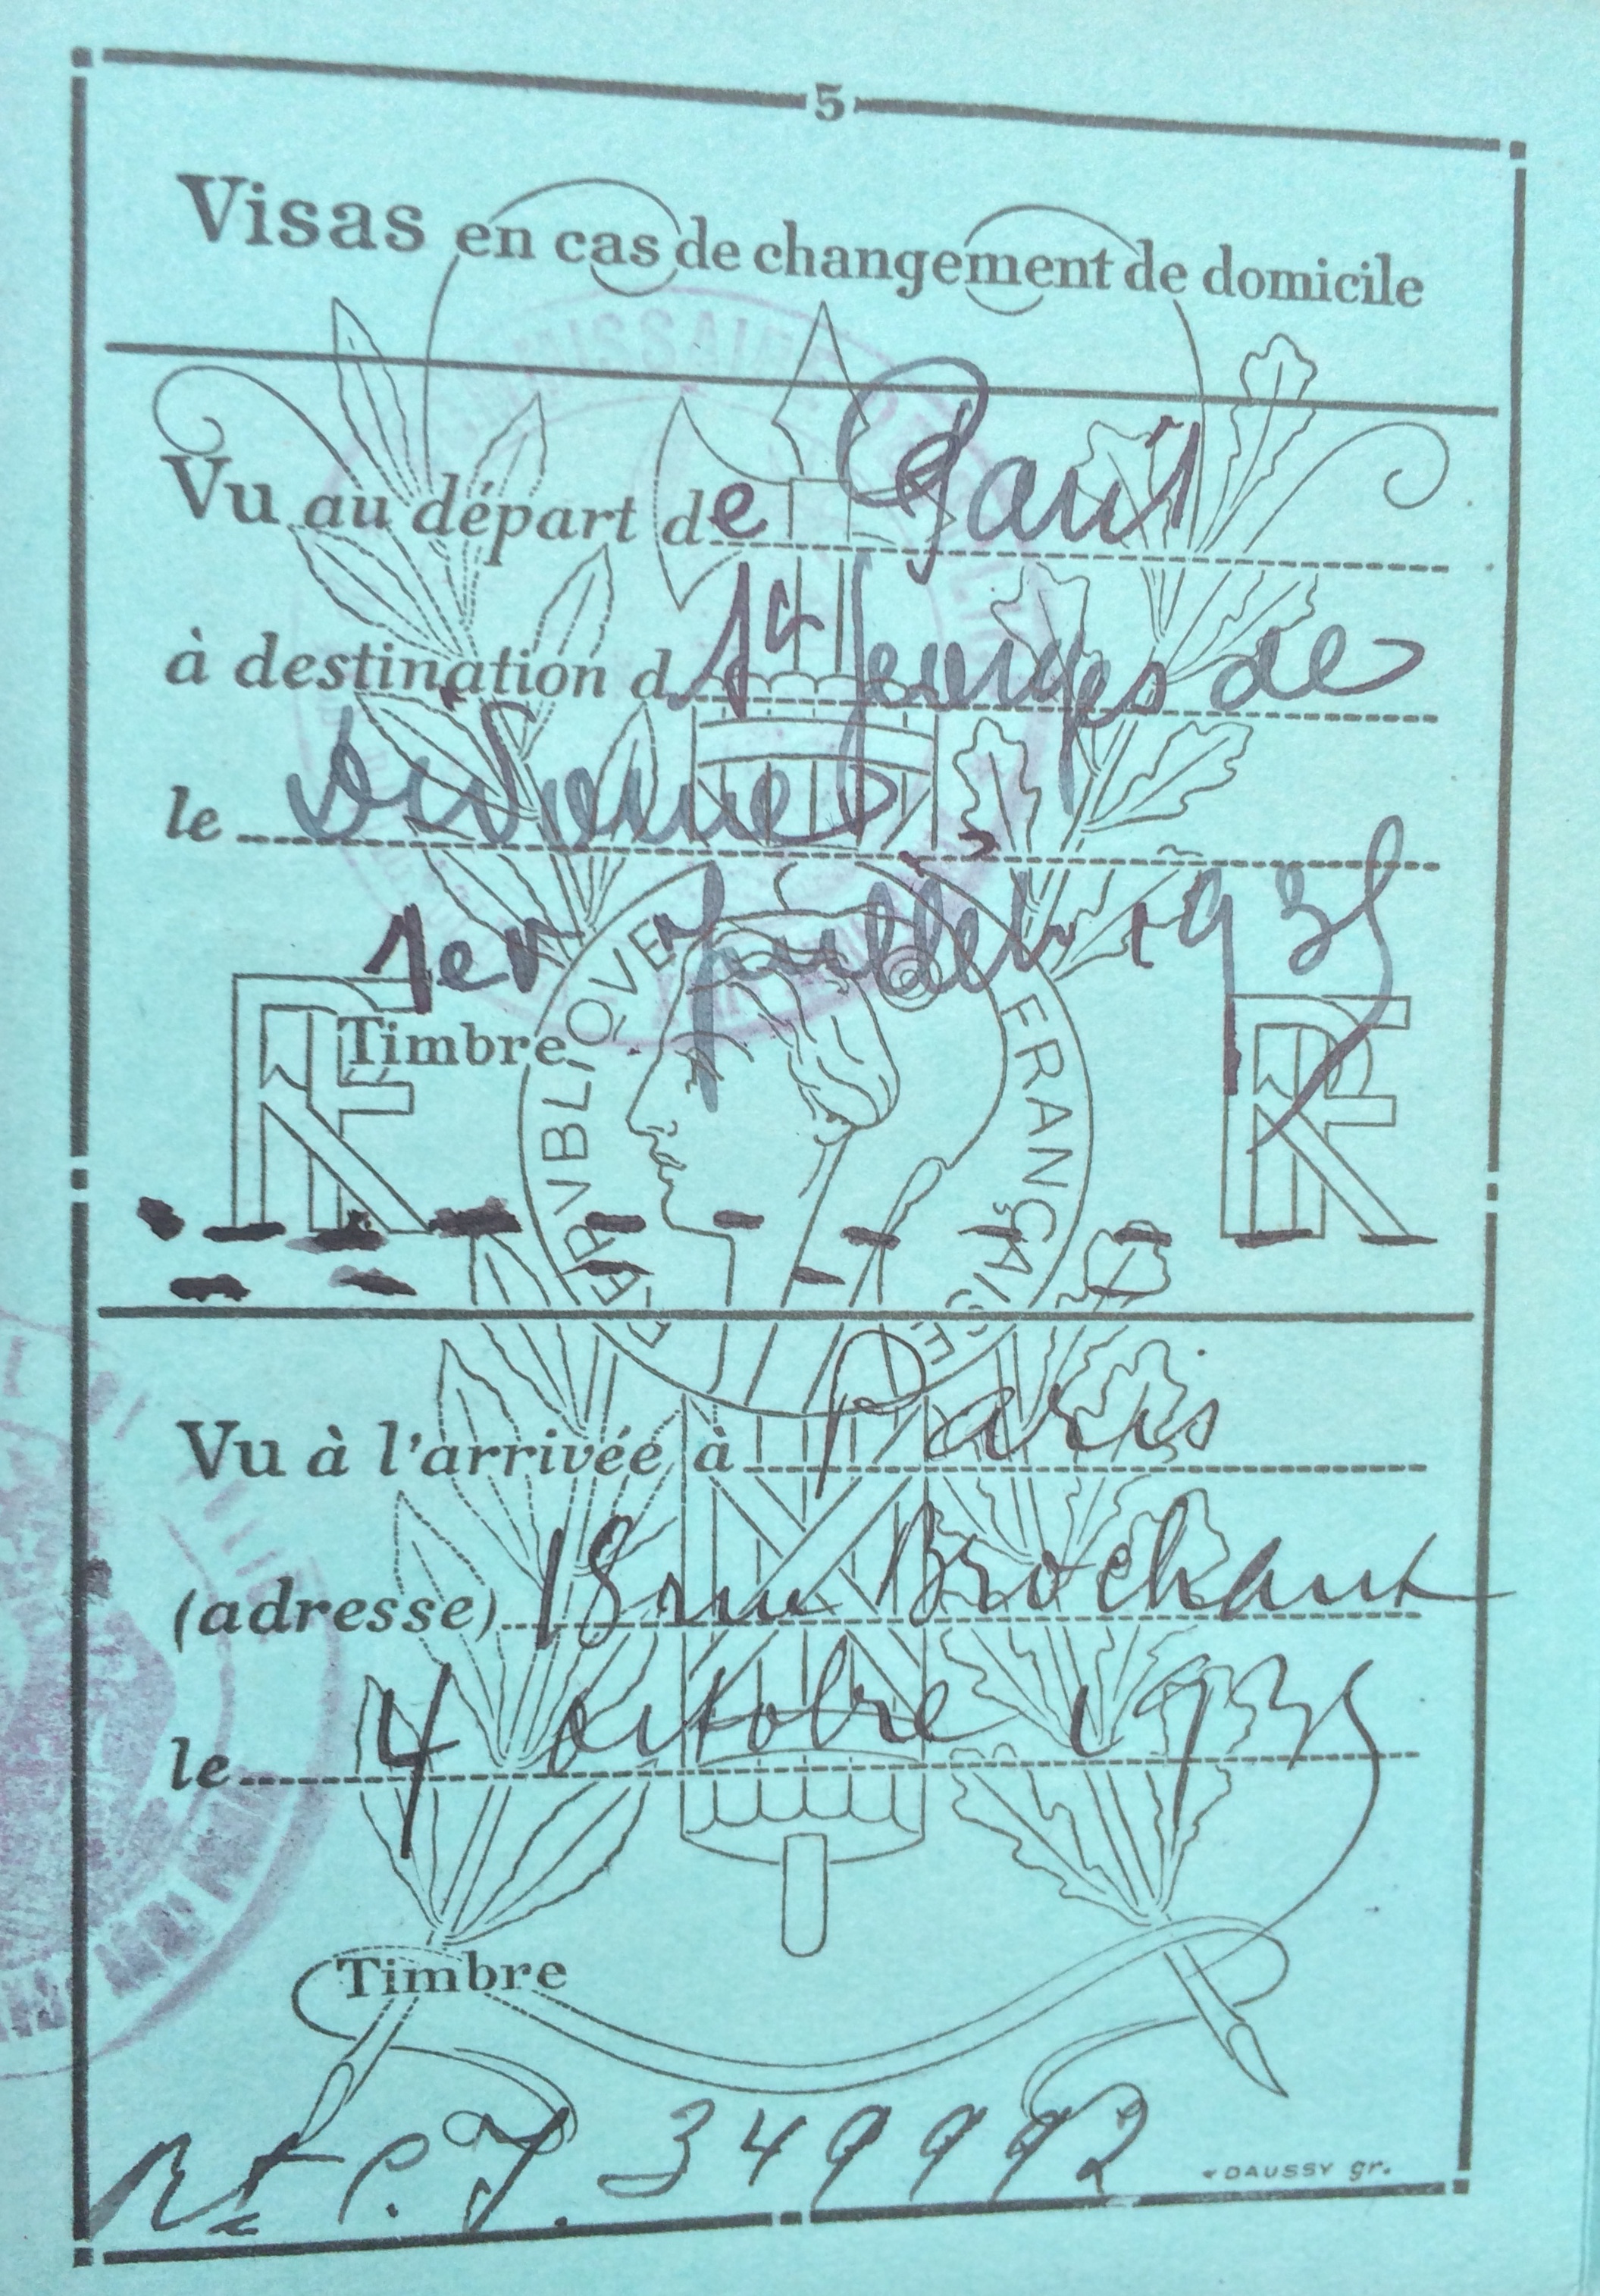 5
Visas en cas de changement de domicile
Vu au départ de Paris
à destination d St Georges de
le Didonne
1er juillet 1935
Timbre
RF
RÉPVBLIQVE FRANÇAISE
RF
Vu à l'arrivée à Paris
(adresse) 18 rue Brochant
le 4 octobre 1935
Timbre
349992
DAUSSY gr.